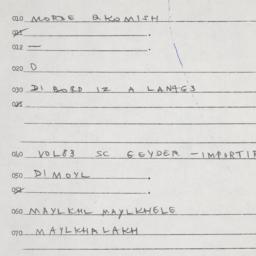 010 MORDE QKOMISH
011 .
012 — .
020 D
030 DI BORD IZ A LANTG3
025
040 VOL83 SC GEYDER - IMPORTIR
050 DI MOYL .
052 .
060 MAYLKHL MAYLKHELE
070 MAYLKHALAKH